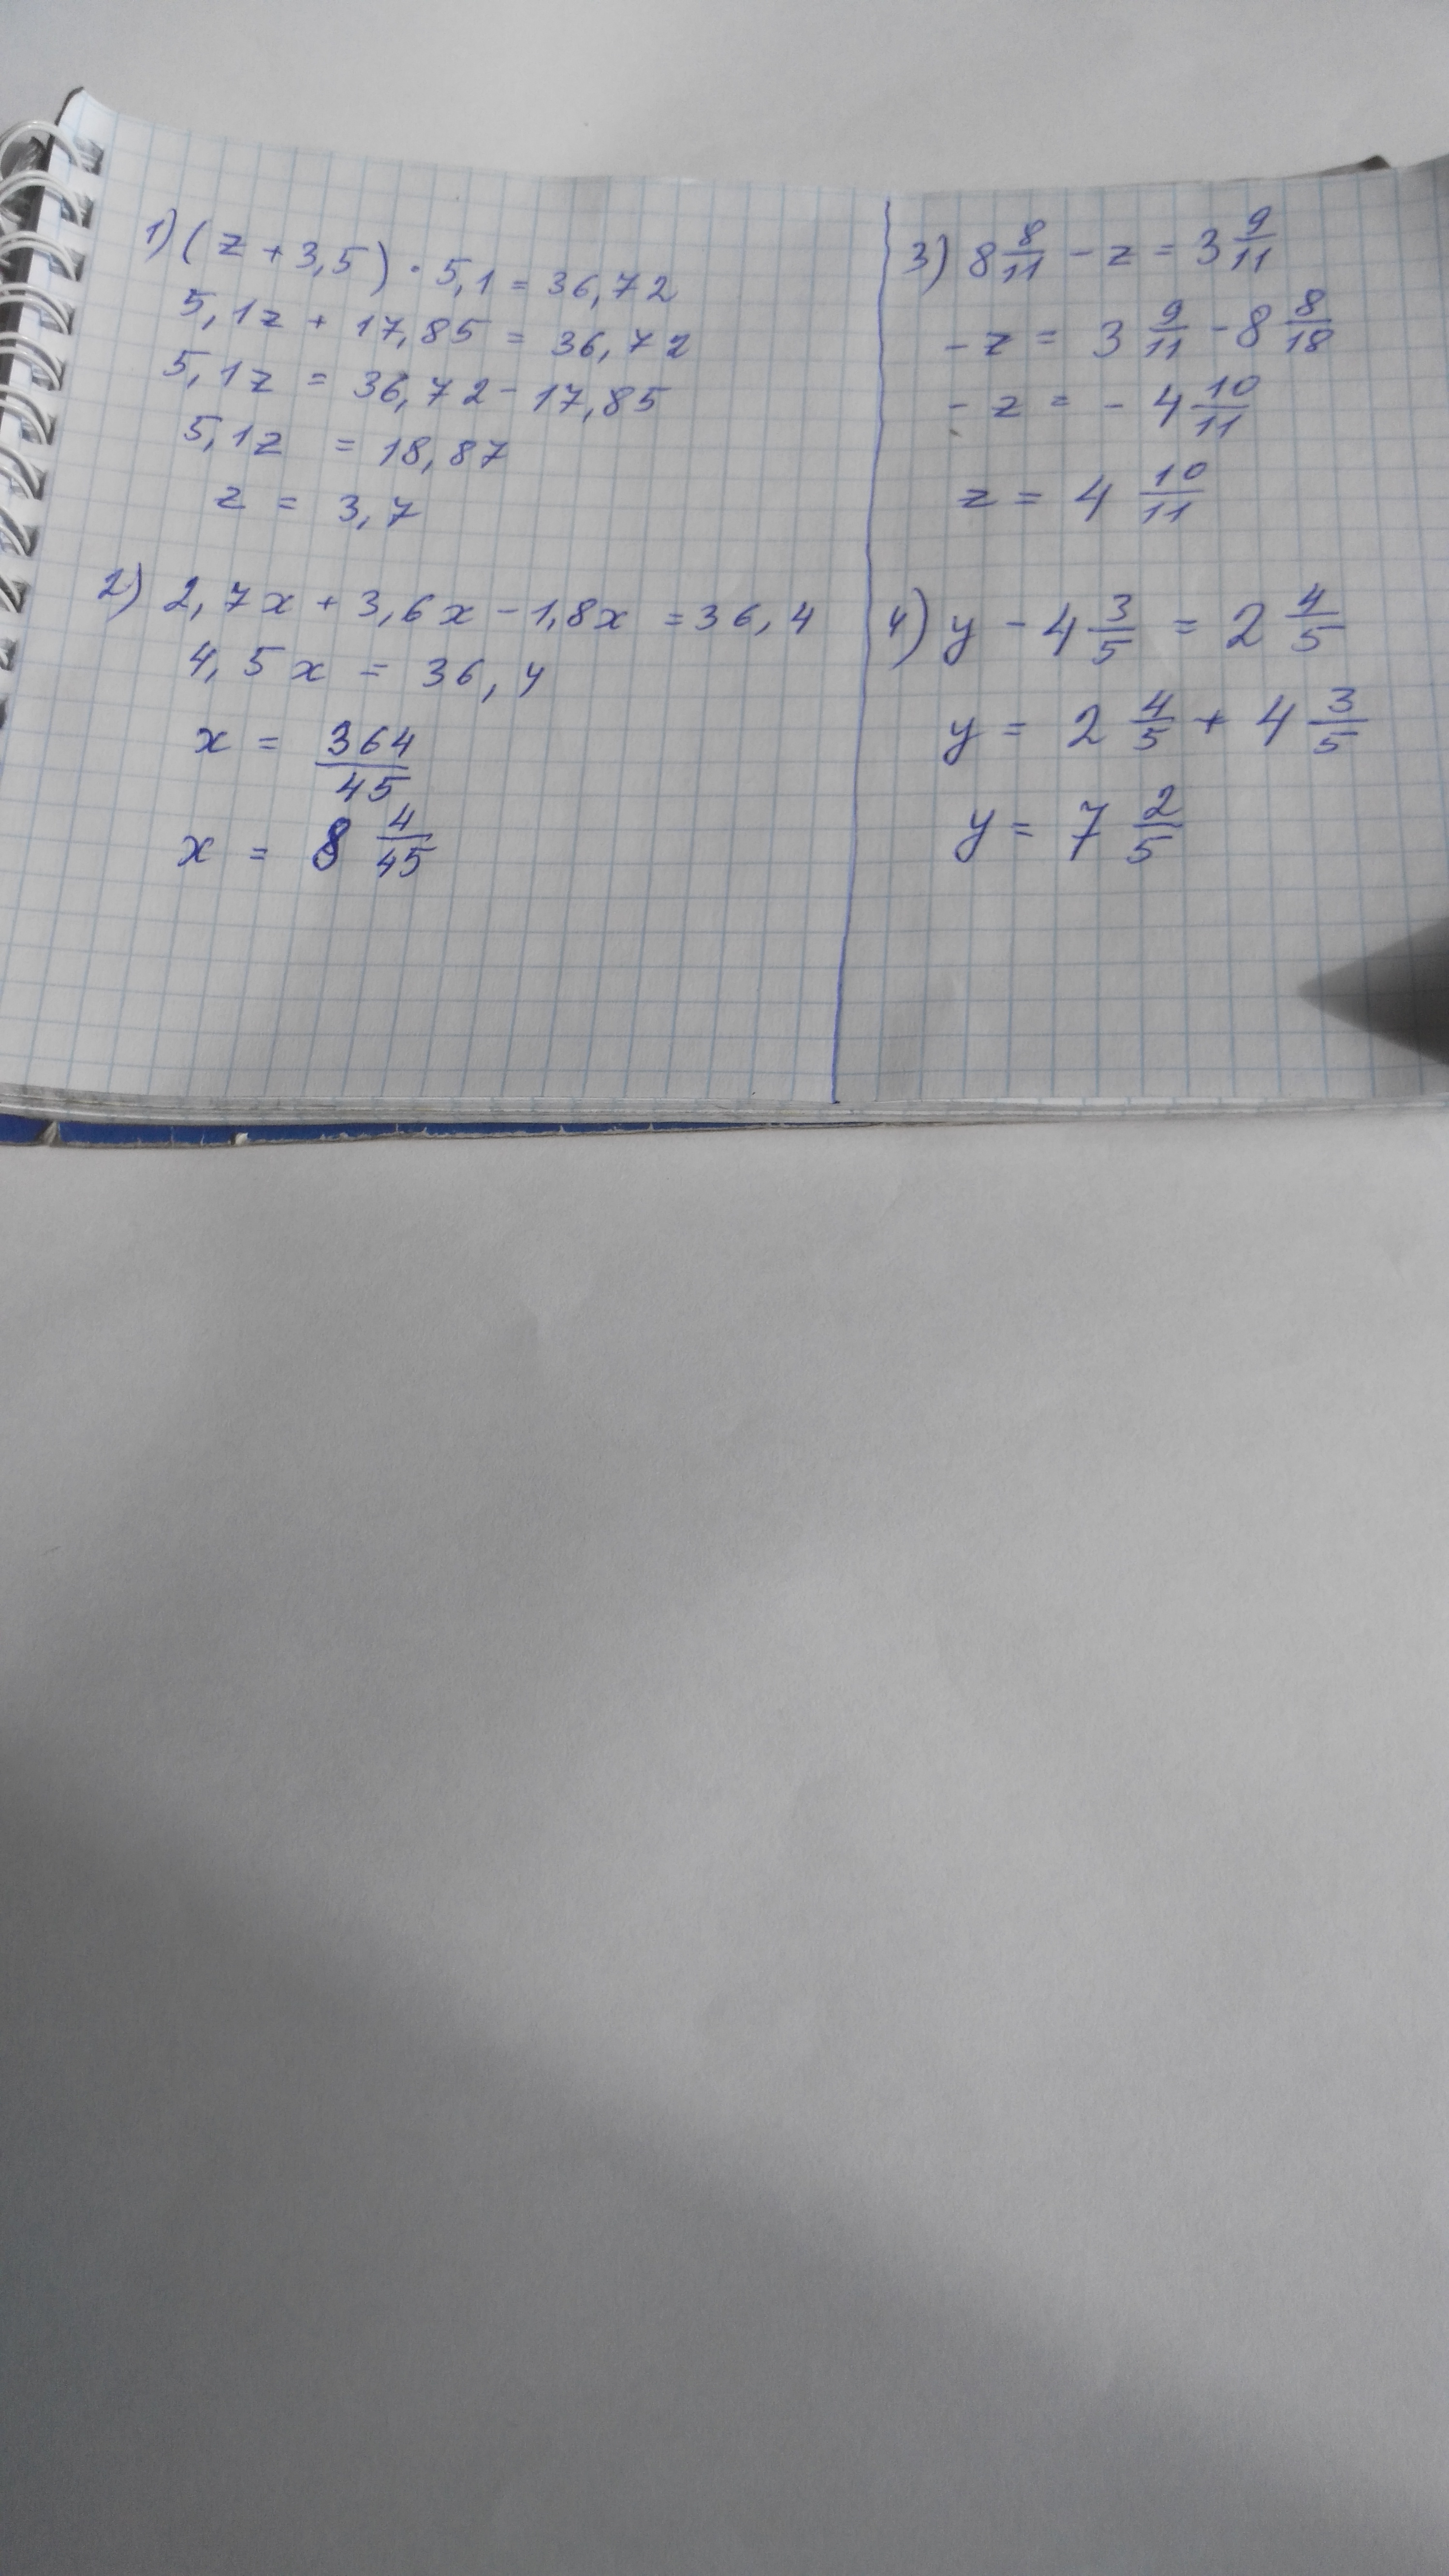 1) (z + 3,5) · 5,1 = 36,72
5,1z + 17,85 = 36,72
5,1z = 36,72 - 17,85
5,1z = 18,87
z = 3,7
2) 2,7x + 3,6x - 1,8x = 36,4
4,5x = 36,4
x = 364/45
x = 8 4/45
3) 8 8/11 - z = 3 9/11
- z = 3 9/11 - 8 8/18
- z = - 4 10/11
z = 4 10/11
4) y - 4 3/5 = 2 4/5
y = 2 4/5 + 4 3/5
y = 7 2/5